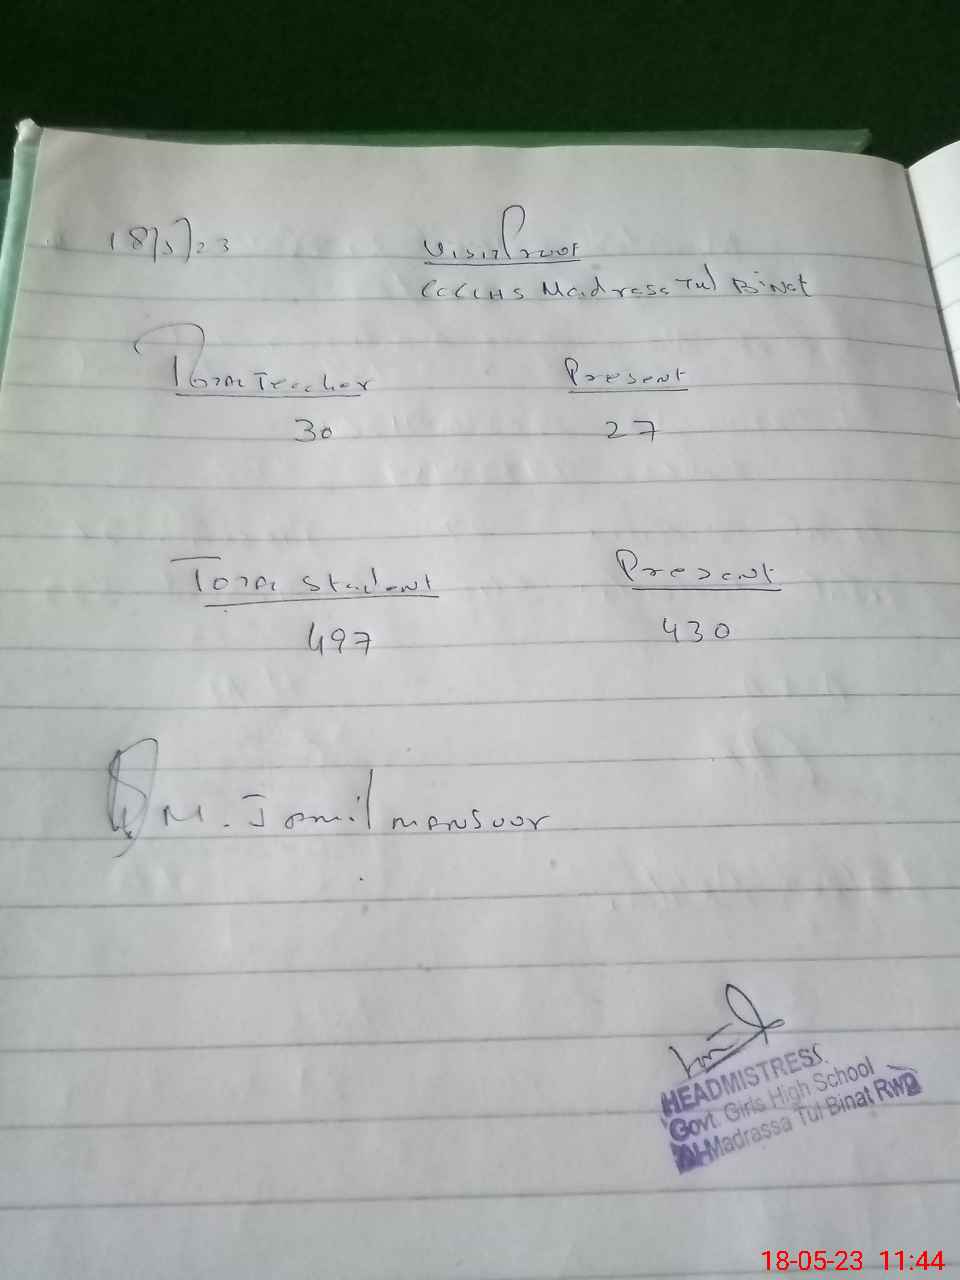 18/5/23
Visit Proof
GGHS Madrasa Tul Binat
Total Teacher
Present
30
27
Total Student
Present
497
430
M. Jamil mansoor
HEADMISTRESS
Govt. Girls High School
Al-Madrassa Tul Binat RWP
18-05-23 11:44